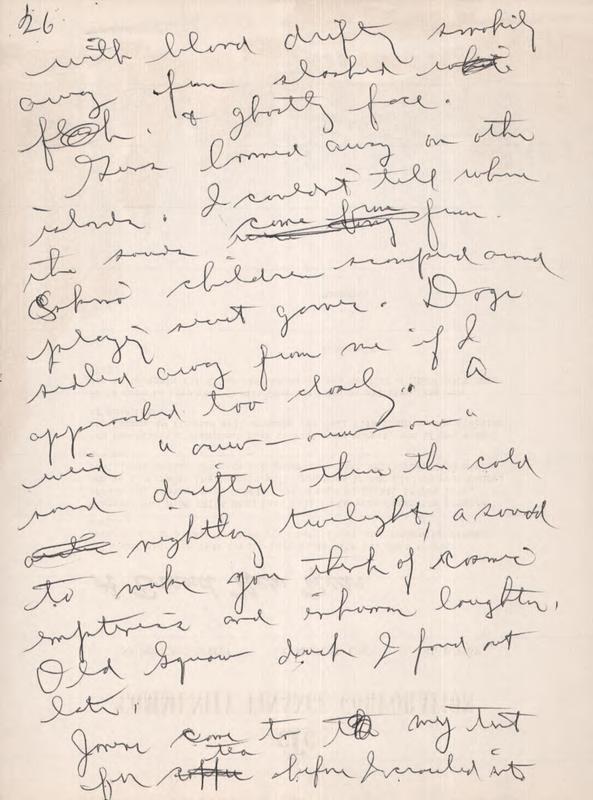 26
with blood drifting smokily
away from slashed white
flesh. & ghostly face.
Guns boomed away on other
islands. I couldn't tell where
the sounds came from.
Eskimo children scamped around
playing secret games. Dogs
sidled away from me if I
approached too closely. A
weird "oruw—oruw—ow"
sound drifted thru the cold
nightlong twilight, a sound
to make you think of cosmic
emptiness and inhuman laughter.
Old Squaw duck I found out
later.
come to my tent
for tea before I crawled into